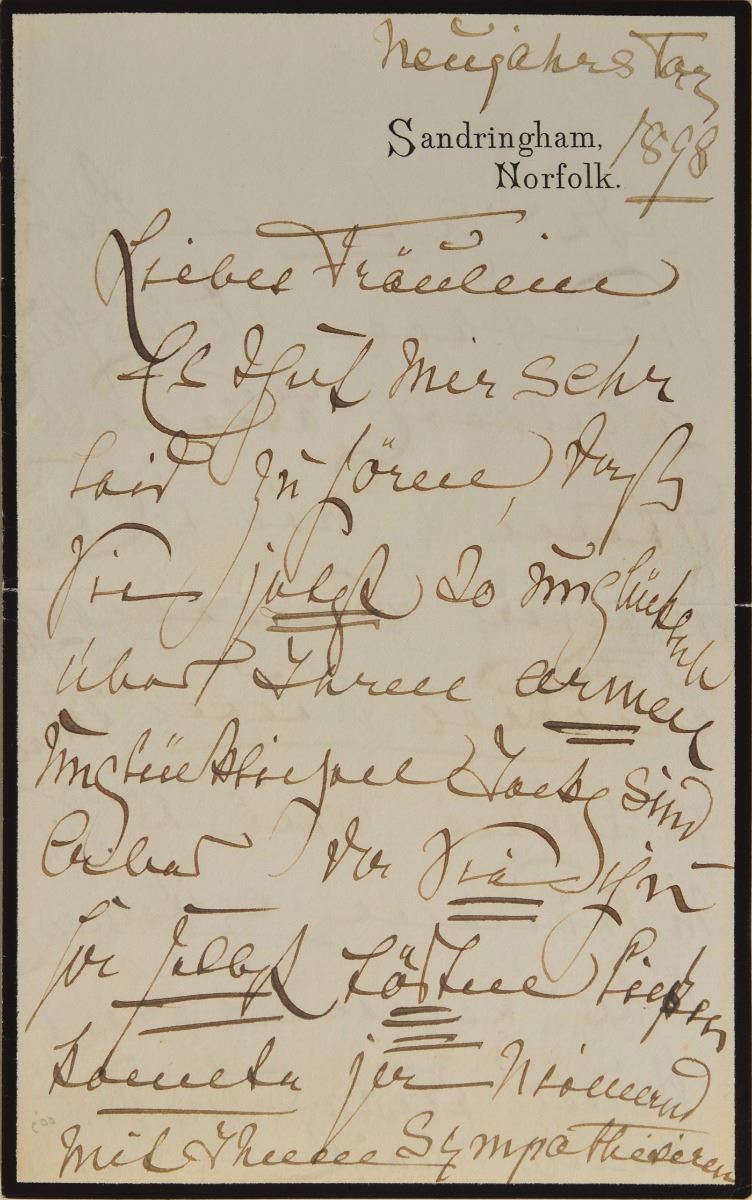 Neujahrs Tag
Sandringham, 1898
Norfolk.
Liebes Fräulein
Es thut mir sehr
leid zu hören, daß
Sie jetzt so unglücklich
über Ihren armen
unglücklichen Jacky sind
aber da Sie ihn
ja selbst tödten ließen
konnte ja Niemand
mit Ihnen Sympathisiren